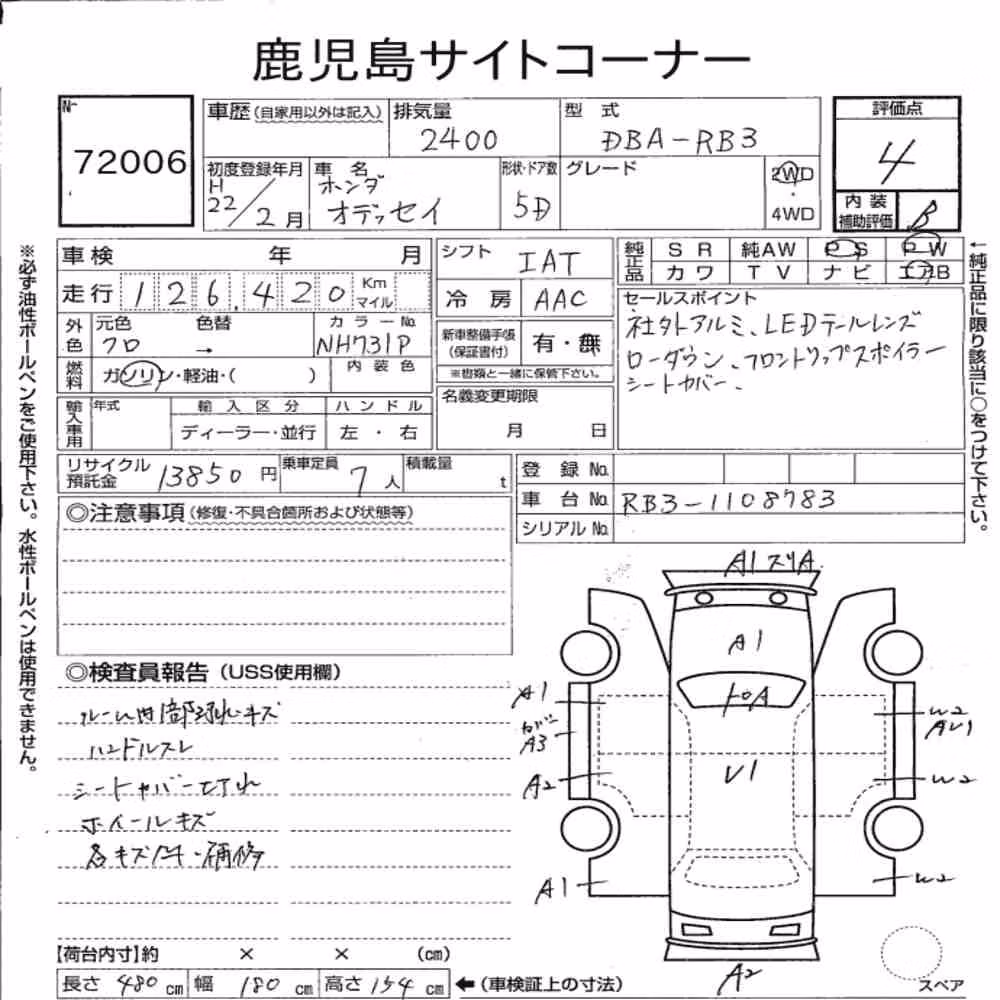 鹿児島サイトコーナー
No.
72006
車歴(自家用以外は記入) 排気量 2400 型式 DBA-RB3
評価点 4
初度登録年月 H22/2月 車名 ホンダ オデッセイ 形状・ドア数 5D グレード 2WD・4WD
内装補助評価 B
車検 年 月
シフト IAT
純正品 SR 純AW PS PW
カワ TV ナビ エアB
走行 126,420 Km マイル
冷房 AAC
セールスポイント
社外アルミ、LEDテールレンズ
ローダウン、フロントリップスポイラー
シートカバー、
外色 元色 クロ 色替 → カラーNo. NH731P
新車整備手帳(保証書付) 有・無
※書類と一緒に保管下さい。
燃料 ガソリン・軽油・( ) 内装色
名義変更期限 月 日
輸入車用 年式 輸入区分 ハンドル
ディーラー・並行 左・右
リサイクル預託金 13850円 乗車定員 7人 積載量 t
登録No.
車台No. RB3-1108783
シリアルNo.
※必ず油性ボールペンをご使用下さい。水性ボールペンは使用できません。
←純正品に限り該当に○をつけて下さい。
◎注意事項(修復・不具合箇所および状態等)
◎検査員報告(USS使用欄)
ルーム内部張りキズ
ハンドルスレ
シートカバー切れ
ホイールキズ
各キズ・補修
A1スリA
A1
トビA
V1
A1
A3
A2
A1
W2
AU1
W2
W2
A2
スペア
【荷台内寸】約 × × (cm)
長さ 480cm 幅 180cm 高さ 154cm ←(車検証上の寸法)